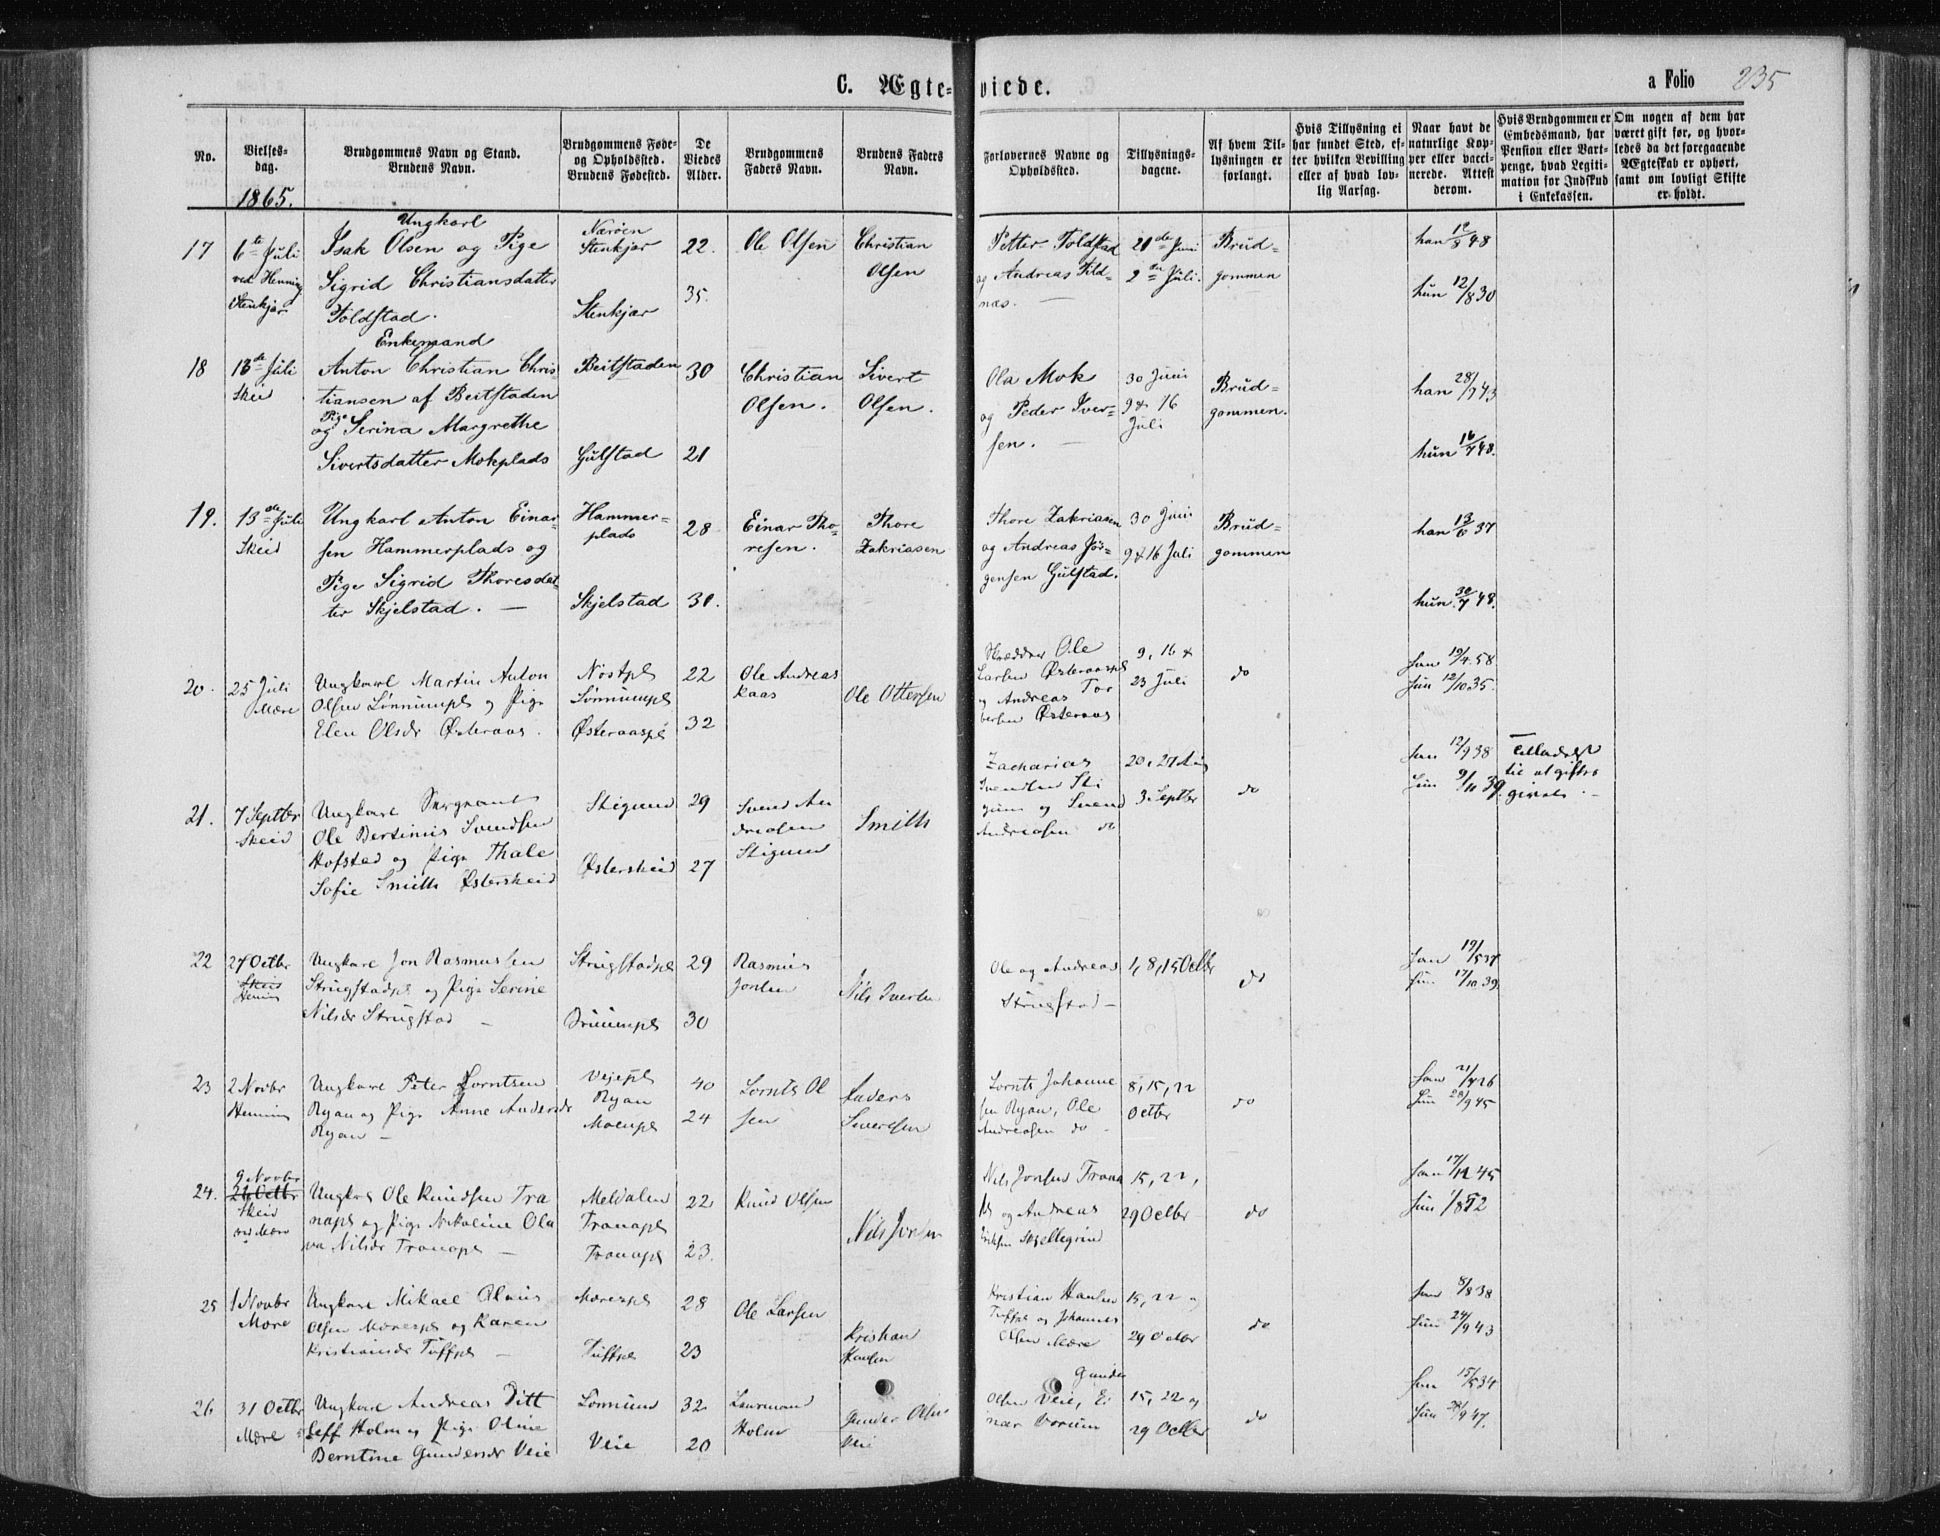 C. Ægteviede.
a Folio 235
No.
Vielsesdag.
Brudgommens Navn og Stand.
Brudens Navn.
Brudgommens Føde- og Opholdssted.
Brudens Fødested.
De Viedes Alder.
Brudgommens Faders Navn.
Brudens Faders Navn.
Forlovernes Navne og Opholdssted.
Tillysningsdagene.
Af hvem Tillysningen er forlangt.
Hvis Tillysning ei har fundet Sted, efter hvilken Bevilling eller af hvad lovlig Aarsag.
Naar havt de naturlige Kopper eller vaccinerede. Attest derom.
Hvis Brudgommen er Embedsmand, har Pension eller Vartpenge, hvad Legitimation for Indskud i Enkekassen.
Om nogen af dem har været gift før, og hvorledes da det foregaaende Ægteskab er ophørt, samt om lovligt Skifte er holdt.
1865.
17
6te Juli
ved Henning
Stenkjær
Ungkarl
Isak Olsen og Pige
Sigrid Christiansdatter
Foldstad.
Nærøen
Stenkjær
Stenkjær
22.
35.
Ole Olsen
Christian
Olsen
Petter Foldstad
og Andreas Fild-
næs.
21de Juni
2den Juli.
Brud-
gommen
han 19/8 48
hun 12/8 30
18
13de Juli
Skei
Enkemand
Anton Christian Chris-
tiansen af Beitstaden
og Pige Serina Margrethe
Sivertsdatter Mokplads
Beitstaden
Gulstad
30
21
Christian
Olsen.
Sivert
Olsen.
Ola Mok
og Peder Iver-
sen.
30 Juni
9 & 16
Juli
Brud-
gommen.
han 28/7 43
hun 16/7 48.
19.
13de Juli
Skeid
Ungkarl Anton Einar-
sen Hammerplads og
Pige Sigrid Thoresdat-
ter Skjelstad.
Hammer-
plads
Skjelstad
28
30.
Einar Tho-
resen.
Thore
Zakriasen
Thore Zakriasen
og Andreas Jør-
gensen Gulstad.
30 Juni
9 & 16 Juli
Brud-
gommen
han 13/6 37
hun 30/7 48.
20.
25 Juli
Mære
Ungkarl Martin Anton
Olsen Lønnumpl og Pige
Elen Olsdr Østeraas.
Nøstpl
Lønnumpl
Østeraaspl
22
32
Ole Andreas
kaas
Ole Ottersen
Skrædder Ole
Larsen Østeraaspl
og Andreas Tor
bersen Østeraas
9, 16 &
23 Juli
do
han 19/4 58
hun 12/10 35.
21.
7 Septbr
Skeid
Ungkarl Sergeant
Ole Bertinius Svendsen
Hofstad og Pige Thale
Sofie Smith Østerskeid
Stigum
Østerskeid
29
27
Svend An
dreasen
Stigum
Smith
Zacharias
Svendsen Sti
gum og Svend
Andreasen do
20, 27 Aug
3 Septbr
do
han 12/9 38
hun 9/11 39.
Tilladelse
til at giftes
givet.
22
27 Octbr
Skeid
Henning
Ungkarl Jon Rasmussen
Strugstadpl og Pige Serine
Nilsdr Strugstad
Strugstadpl
29
30
Rasmus
Jonsen
Nils Iversen
Ole og Andreas
Strugstad
1, 8, 15 Octbr
do
han 19/5 37
hun 17/10 39
23
2 Novbr
Henning
Ungkarl Peter Lorntsen
Ryan og Pige Anne Andersdr
Ryan
Vejepl
Ryan
Moenpl
40
24
Lornts Ol
sen
Anders
Sivertsen
Lornts Johanne
sen Ryan, Ole
Andreasen do
8, 15, 22
Octbr
do
han 21/4 26
hun 28/9 45
24.
9 Novbr
26 Octbr
Skeid
ved Mære
Ungkarl Ole Knudsen Tra
napl og Pige Nikoline Ola
va Nilsdr Tranapl
Meldalen
Tranapl
Tranapl
22
23.
Knud Olsen
Nils Jonsen
Nils Jonsen Trana
pl og Andreas
Eriksen Skjellegrind
15, 22,
29 Octbr
do
han 17/12 45
hun 1/8 52
25
1 Novbr
Mære
Ungkarl Mikael Olaus
Olsen Mærespl og Karen
Kristiansdr Tuffpl
Mærespl
Tuffpl
28
23
Ole Larsen
Kristian
Hansen
Kristian Hansen
Tuffpl og Johannes
Olsen Mære
15, 22 og
29 Octbr
do
han 8/8 38
hun 24/9 43
26
31 Octbr
Mære
Ungkarl Andreas Ditt
leff Holm og Pige Oline
Berntine Gundersdr Veie
Lønnum
Veie
32
20
Laurmand
Holm
Gunder Olsen
Veie
Gunder
Olsen Veie, Ei
nar Vorum
15, 22 og
29 Octbr
do
han 15/5 34
hun 28/9 47.